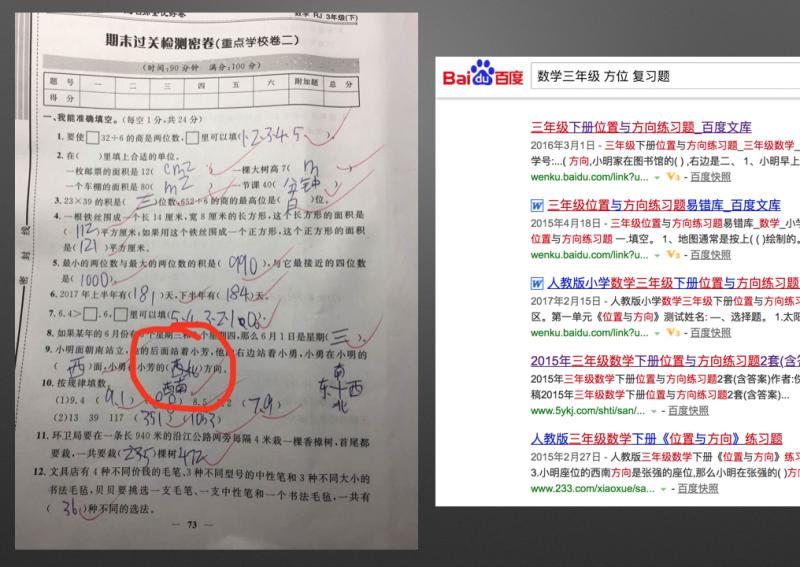 数学 RJ 3年级(下)
期末过关检测密卷(重点学校卷二)
(时间:90分钟 满分:100分)
题 号 一 二 三 四 五 六 附加题 总 分
得 分
一、我能准确填空。(每空1分,共24分)
1. 要使□32÷6的商是两位数,□里可以填(1、2、3、4、5)
2. 在( )里填上合适的单位。
一枚邮票的面积是12(cm2) 一棵大树高7(m)
一个车棚的面积是80(m2) 一节课40(分钟)
3. 23×39的积是(三)位数,652÷6的商的最高位是(百)位。
4. 一根铁丝围成一个长14厘米,宽8厘米的长方形,这个长方形的面积是
(112)平方厘米;如果用这个铁丝围成一个正方形,这个正方形的面积
是(121)平方厘米。
5. 最小的两位数与最大的两位数的积是(990),与它最接近的四位数
是(1000)。
6. 2017年上半年有(181)天,下半年有(184)天。
7. 6.4>□.6,□里可以填(5、4、3、2、1、0)
8. 如果某年的6月份有5个星期三和5个星期四,那么6月1日是星期(三)。
9. 小明面朝南站立,他的后面站着小芳,他的右边站着小勇,小勇在小明的
(西)面,小勇在小芳的(西北)方向。
西南
南
东十西
北
10. 按规律填数。
(1)9.4 (9.1) 8.5 (7.9)
(2)13 39 117 (351) (1053)
11. 环卫局要在一条长940米的沿江公路两旁每隔4米栽一棵香樟树,首尾都
要栽,一共要栽(235)棵树 472
12. 文具店有4种不同价钱的毛笔、3种不同型号的中性笔和3种不同大小的
书法毛毡,贝贝要挑选一支毛笔、一支中性笔和一个书法毛毡,一共有
(36)种不同的选法。
— 73
线
封
密
Bai du 百度
数学三年级 方位 复习题
三年级下册位置与方向练习题_百度文库
2016年3月1日 - 三年级下册位置与方向练习题_三年级数学_
学号:...( 方向,小明家在图书馆的( ) ,右边是二、 1、小明早上
wenku.baidu.com/link?u... V3 - 百度快照
W 三年级位置与方向练习题易错库_百度文库
2015年4月18日 - 三年级位置与方向练习题易错库_数学_小学
位置与方向练习题 一.填空。 1、地图通常是按上( )( )绘制的。
wenku.baidu.com/link?u... V3 - 百度快照
W 人教版小学数学三年级下册位置与方向练习题
2017年2月15日 - 人教版小学数学三年级下册位置与方向练习
区。第一单元《位置与方向》测试姓名: 一、选择题。 1.太阳
wenku.baidu.com/link?u... V3 - 百度快照
2015年三年级数学下册位置与方向练习题2套(含答
2015年三年级数学下册位置与方向练习题2套(含答案)作者:佚
稿2015年三年级数学下册位置与方向练习题2套(含答案)...
www.5ykj.com/shti/san/... - 百度快照
人教版三年级数学下册《位置与方向》练习题
2015年2月27日 - 人教版三年级数学下册《位置与方向》练习
3.小明座位的西南方向是张强的座位,那么小明在张强的( )方
www.233.com/xiaoxue/sa... - 百度快照